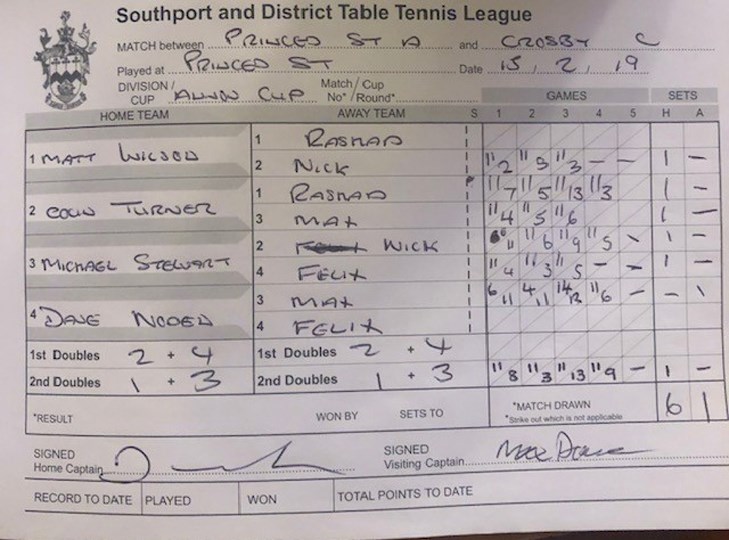 Southport and District Table Tennis League
MATCH between PRINCES ST A and CROSBY C
Played at PRINCES ST Date 15, 2, 19
DIVISION / CUP CUP Match / Cup No* / Round* GAMES SETS
HOME TEAM AWAY TEAM S 1 2 3 4 5 H A
1 MATT WILSON 1 RASHAD
2 NICK 11 2 11 9 11 3 – – 1 –
2 COLIN TURNER 1 RASHAD 11 7 11 5 11 13 11 3 1 –
3 MAX 11 4 11 5 11 6 1 –
3 MICHAEL STEWART 2 NICK 11 11 6 11 9 11 5 - 1 –
4 FELIX 11 4 11 3 11 5 – – 1 –
4 DAVE 3 MAX 6 11 4 11 14 11 6 – – 1
4 FELIX
1st Doubles 2 + 4 1st Doubles 2 + 4
2nd Doubles 1 + 3 2nd Doubles 1 + 3 11 8 11 3 11 13 11 9 – 1 –
*RESULT WON BY SETS TO *MATCH DRAWN 6 1
*Strike out which is not applicable
SIGNED Home Captain SIGNED Visiting Captain
RECORD TO DATE PLAYED WON TOTAL POINTS TO DATE